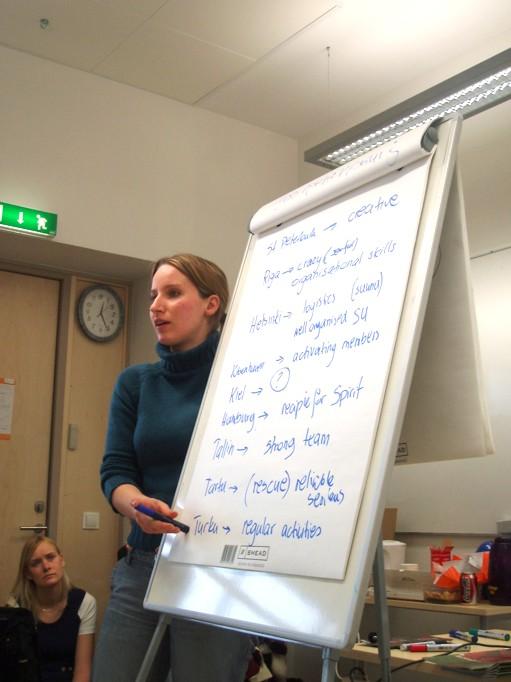 St Petersburg → creative
Riga → crazy
organisational skills
Helsinki → logistics (sauna)
well organised SU
→ activating members
Kiel → ?
Hamburg → spirit
Tallin → strong team
Tartu → (rescue) reliable
serious
Turku → regular activities